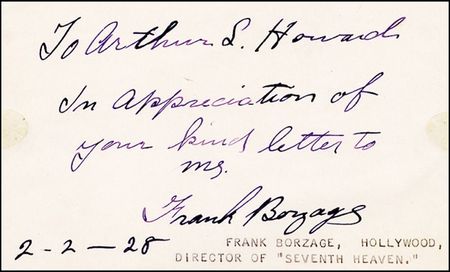 To Arthur L. Howard
In Appreciation of
your kind letter to
me.
Frank Borzage
2-2-28
FRANK BORZAGE, HOLLYWOOD,
DIRECTOR OF "SEVENTH HEAVEN."